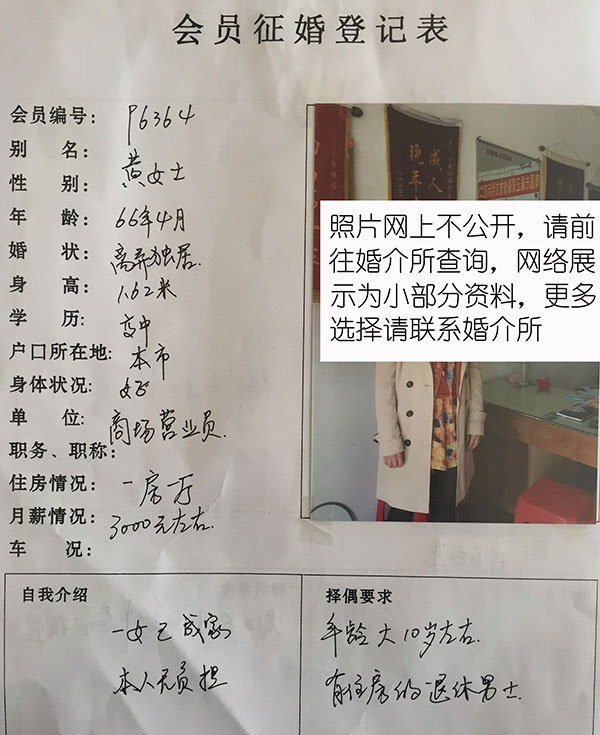 会员征婚登记表
会员编号: P6364
别 名: 黄女士
性 别:
年 龄: 66年4月
婚 状: 离异独居.
身 高: 1.62米
学 历: 高中
户口所在地: 本市
身体状况: 好
单 位: 商场营业员.
职务、职称:
住房情况: 一房一厅
月薪情况: 3000元左右.
车 况:
成人
晚年
照片网上不公开，请前
往婚介所查询，网络展
示为小部分资料，更多
选择请联系婚介所
自我介绍
一女已成家
本人无负担
择偶要求
年龄大10岁左右.
有住房的退休男士.